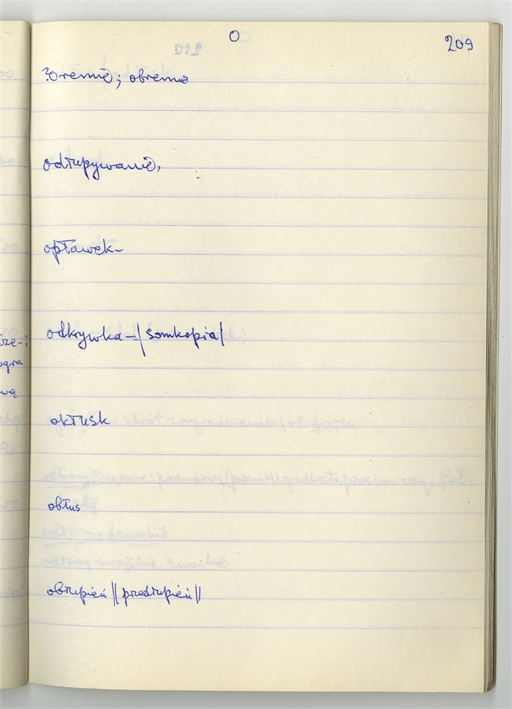 O 209
obremie; obrema
odłupywanie,
opławek-
odkrywka - /somkopia/
okłusk
obłus
obłupień || prodłupień ||